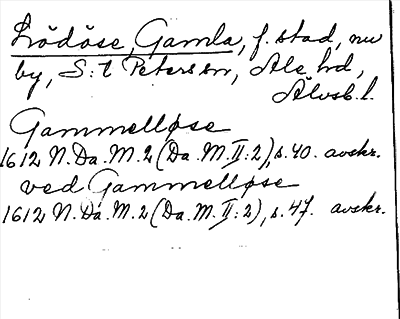 Lödöse, Gamla, f. stad, nu
by, S:t Peters sn, Ale hd,
Älvsb.l.
Gammelløse
1612 N.Da.M.2 (Da.M.II:2), s.40. avskr.
ved Gammelløse
1612 N.Da.M.2 (Da.M.II:2), s.47. avskr.